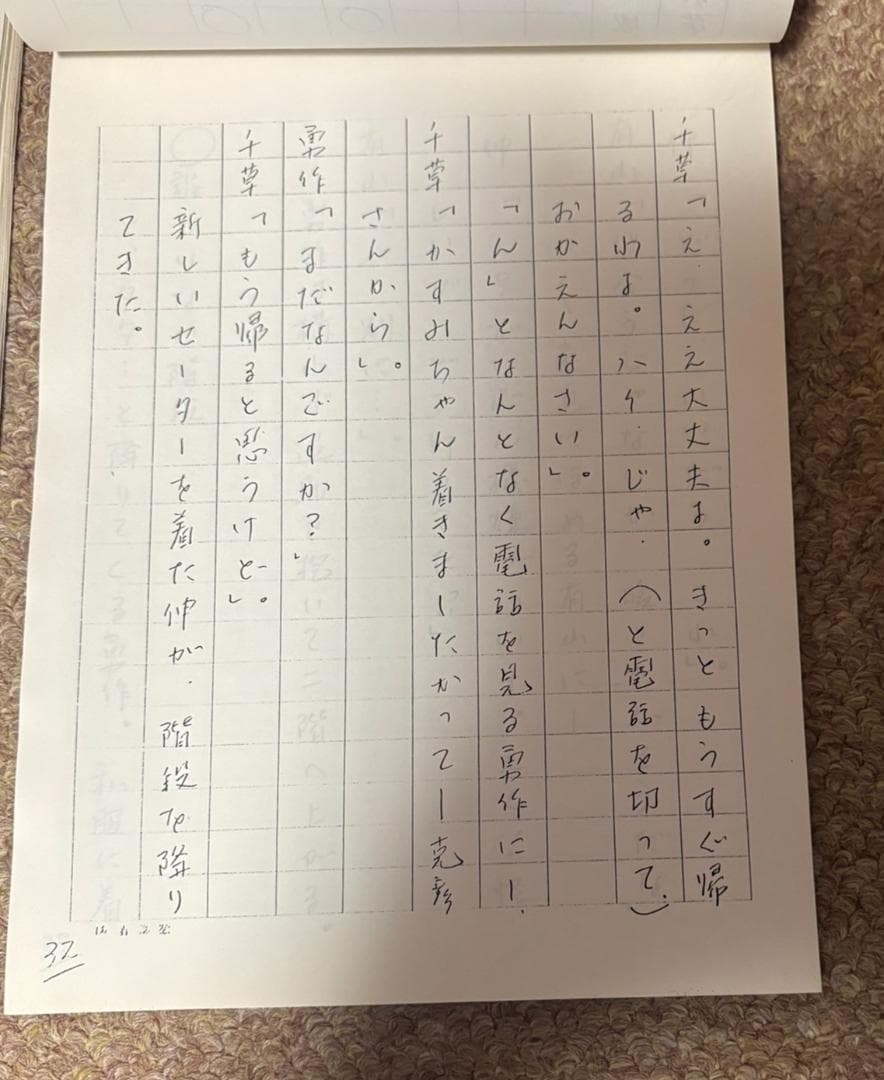 千草「え、ええ大丈夫よ。きっともうすぐ帰
るわよ。ハイ、じゃ、(と電話を切って、)
おかえんなさい」。
「ん」となんとなく電話を見る勇作に―、
千草「かすみちゃん着きましたかって―克彦
さんから」。
勇作「まだなんですか?」
千草「もう帰ると思うけど」。
新しいセーターを着た伸が、階段を降り
てきた。
32